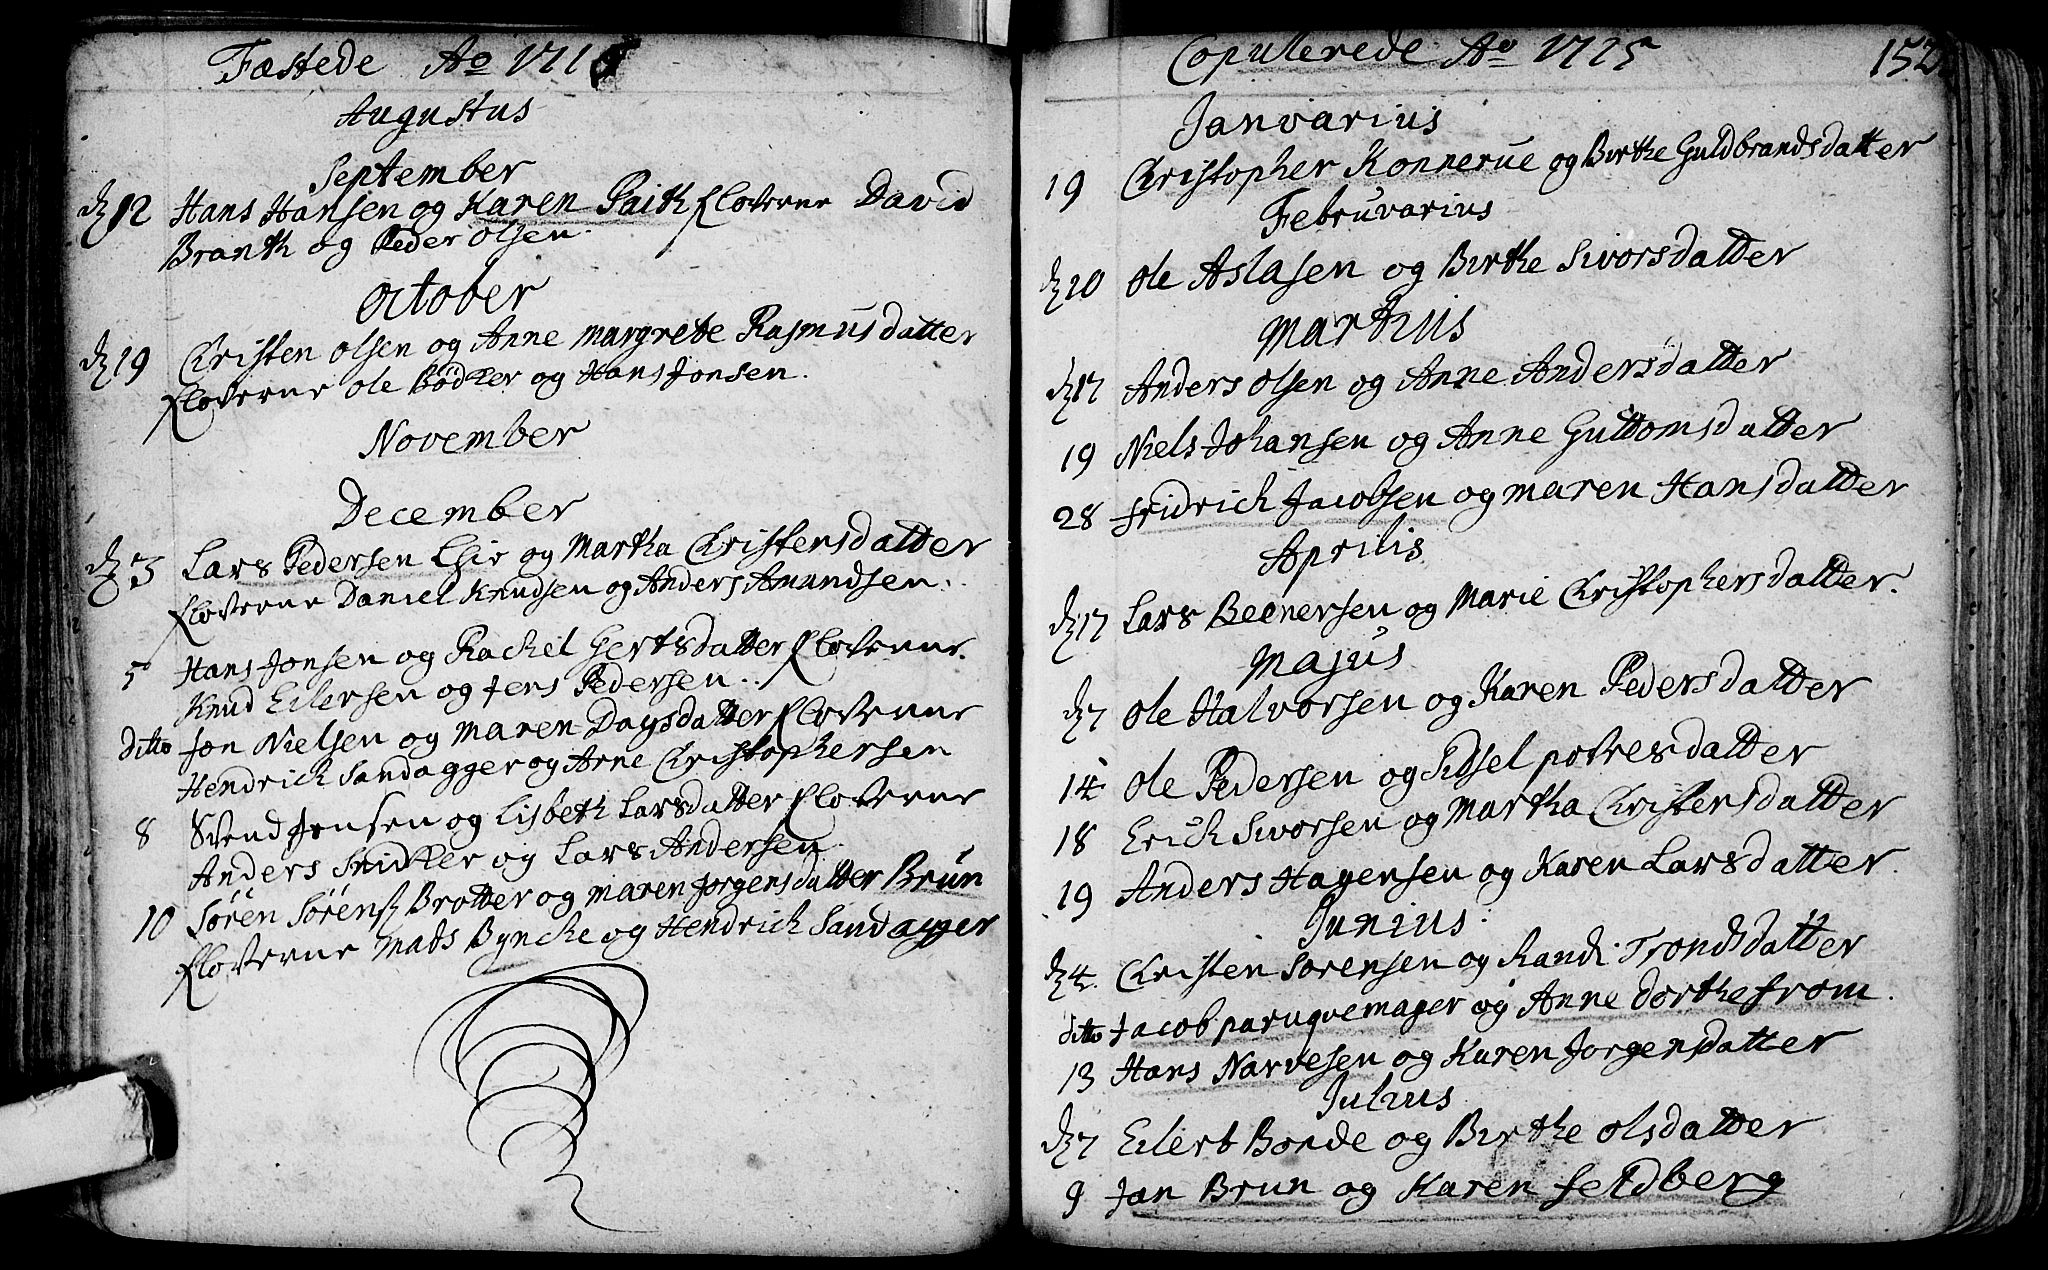 Fæstede Ao 171
Augustus
September
d 12 Hans Hansen og Karen Paith Floverne David
Branth og Peder olsen.
October
d 19 Christen olsen og Anne margrete Rasmusdatter
Floverne ole Bödker og Hans Jonsen.
November
December
d 3 Lars Pedersen og Martha Christensdatter
Floverne Daniel Knudsen og Anders Amundsen.
5 Hans Jonsen og Rachel Gertsdatter Floverne
Knud Eilersen og Jens Pedersen.
ditto Jon Nielsen og maren Dagsdatter Floverne
Hendrich Sandagger og Arne Christophersen
8 Svend Jensen og Lisbeth Larsdatter Floverne
Anders Snidker og Lars Andersen
10 Sören Sörens Brotter og maren Jorgensdatter Brun
Floverne Mads Byncke og Hendrich Sandagger
Copulerede Ao 1715 152
Janvarius
19 Christopher Konnerue og Birthe Guldbrandsdatter
Februvarius
d 20 ole Aslasen og Birthe Sivorsdatter
Martius
d 17 Anders olsen og Anne Andersdatter
19 Niels Johansen og Anne Guttomsdatter
28 fridrich Jacobsen og maren Hansdatter
Aprilis
d 17 Lars Beenersen og Marie Christophersdatter.
Majus
d 7 ole Halvorsen og Karen Pedersdatter
14 ole Pedersen og Sidsel povresdatter
18 Erich Sivorsen og Martha Christensdatter
19 Anders Hagensen og Karen Larsdatter.
Junius
d 4. Christen Sorensen og Randi Trondsdatter
ditto Jacob paruqvemager og Anne Dorthe from.
13 Hans Narvesen og Karen Jorgensdatter
Julius
d 7 Eilert Borde og Birthe olsdatter
9 Jan Brun og Karen feldberg